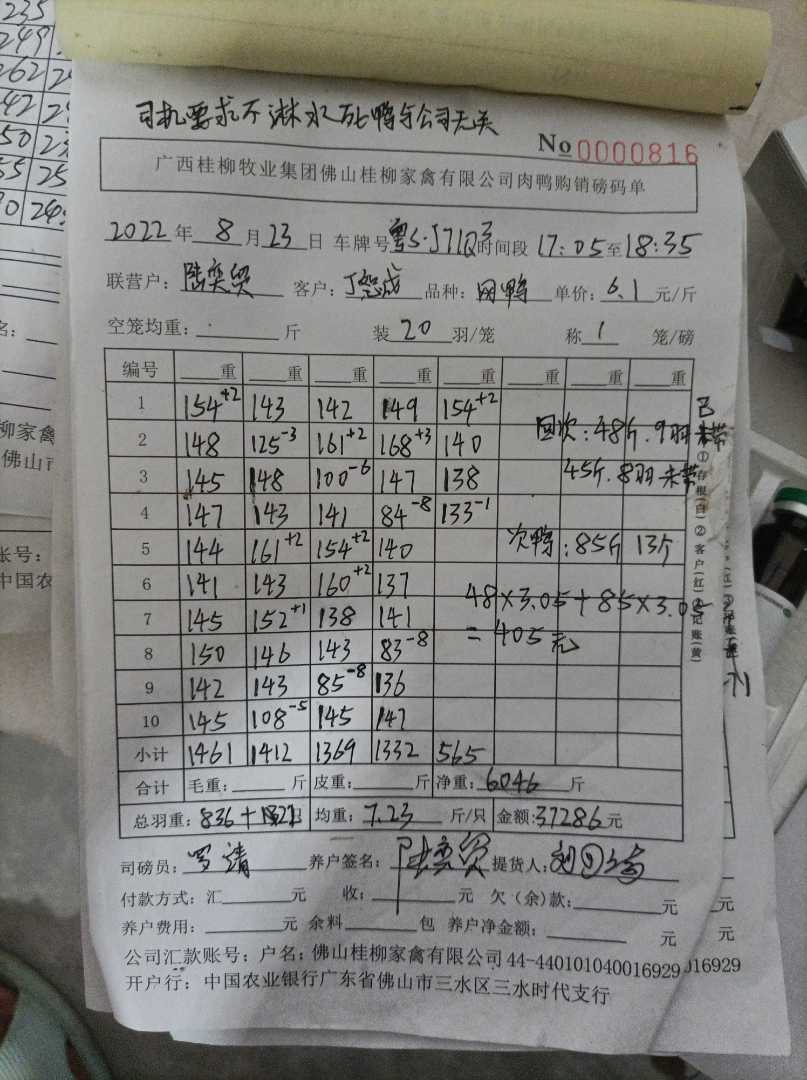 235
249
262 24
42 24
50 23
55 25
90 249
司机要求不淋水死鸭与公司无关
No 0000816
广西桂柳牧业集团佛山桂柳家禽有限公司肉鸭购销磅码单
2022年 8 月 23 日 车牌号 粤S·J71Q3 时间段 17:05 至 18:35
联营户: 陆奕贸 客户: 丁智成 品种: 网鸭 单价: 6.1 元/斤
空笼均重: 斤 装 20 羽/笼 称 1 笼/磅
编号 重 重 重 重 重 重 重 重
1 154+2 143 142 149 154+2
2 148 125-3 161+2 168+3 140 回次:48斤.9羽未带
3 145 148 100-6 147 138 45斤.8羽未带
4 147 143 141 84-8 133-1
5 144 161+2 154+2 140 次鸭:85斤 13个
6 141 143 160+2 137 48×3.05+85×3.05
7 145 152+1 138 141 =405元
8 150 146 143 83-8
9 142 143 85-8 136
10 145 108-5 145 147
小计 1461 1412 1369 1332 565
合计 毛重: 斤 皮重: 斤 净重: 6046 斤
总羽重: 836+ 均重: 7.23 斤/只 金额: 37286元
司磅员: 罗靖 养户签名: 陆奕贸 提货人:
付款方式: 汇 元 收: 元 欠(余)款: 元
养户费用: 元 余料 包 养户净金额: 元
公司汇款账号: 户名: 佛山桂柳家禽有限公司 44-440101040016929
开户行: 中国农业银行广东省佛山市三水区三水时代支行
①存根(白)②客户(红)③记账(黄)
柳家禽
佛山市
账号:
中国农
元
元
016929